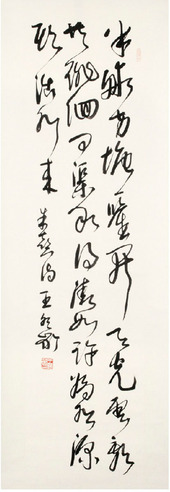 半畝方塘一鑑開天光雲影
共徘徊問渠那得清如許為有源
頭活水來 朱熹詩 王冬齡